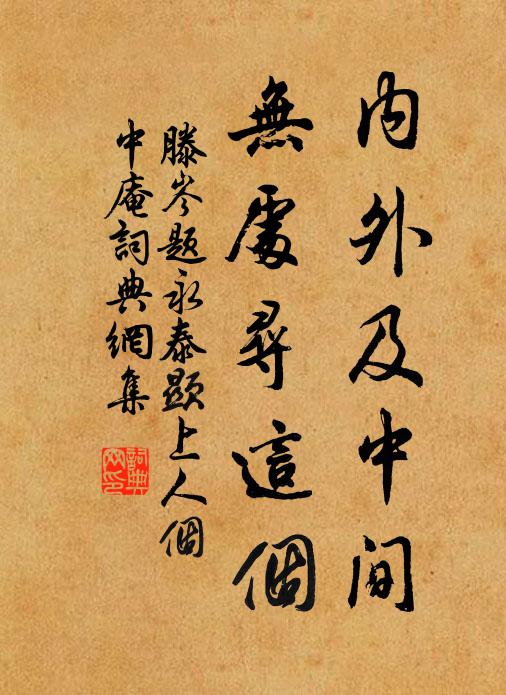 內外及中間
無處尋這個
滕岑題永泰顯上人個
中庵詞典網集
詞典網印